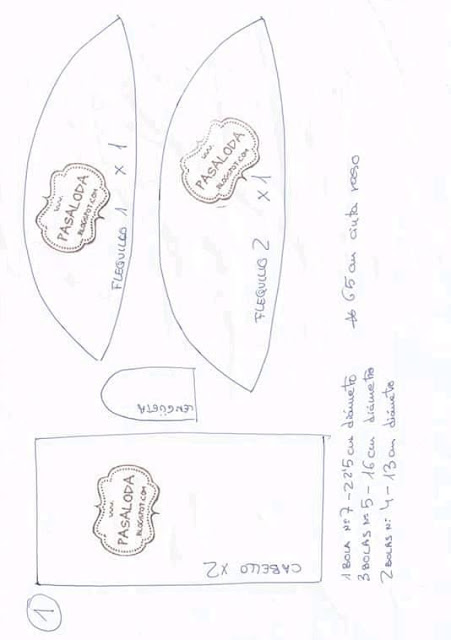 www.
PASALODA
BLOGSPOT.COM
FLEQUILLO 1 x 1
www.
PASALODA
BLOGSPOT.COM
FLEQUILLO 2 x 1
65 cm cinta raso
LENGÜETA
www.
PASALODA
BLOGSPOT.COM
CABELLO x2
1 BOLA Nº 7 - 22'5 cm diámetro
3 BOLAS Nº 5 - 16 cm diámetro
2 BOLAS Nº 4 - 13 cm diámetro
1